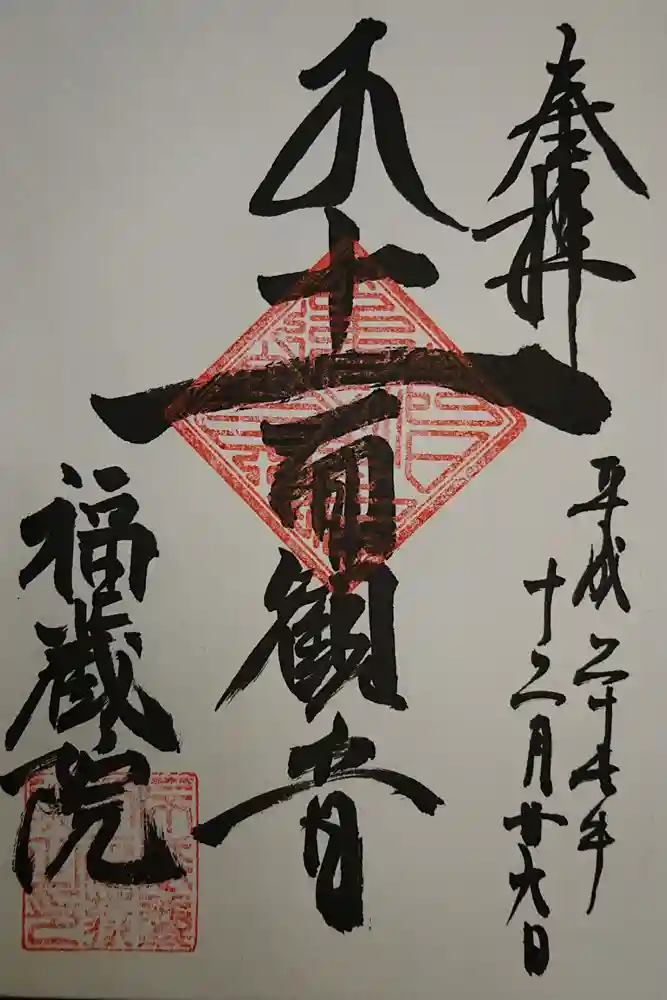 奉拝
平成二十七年
十二月廿九日
十一面観音
福蔵院